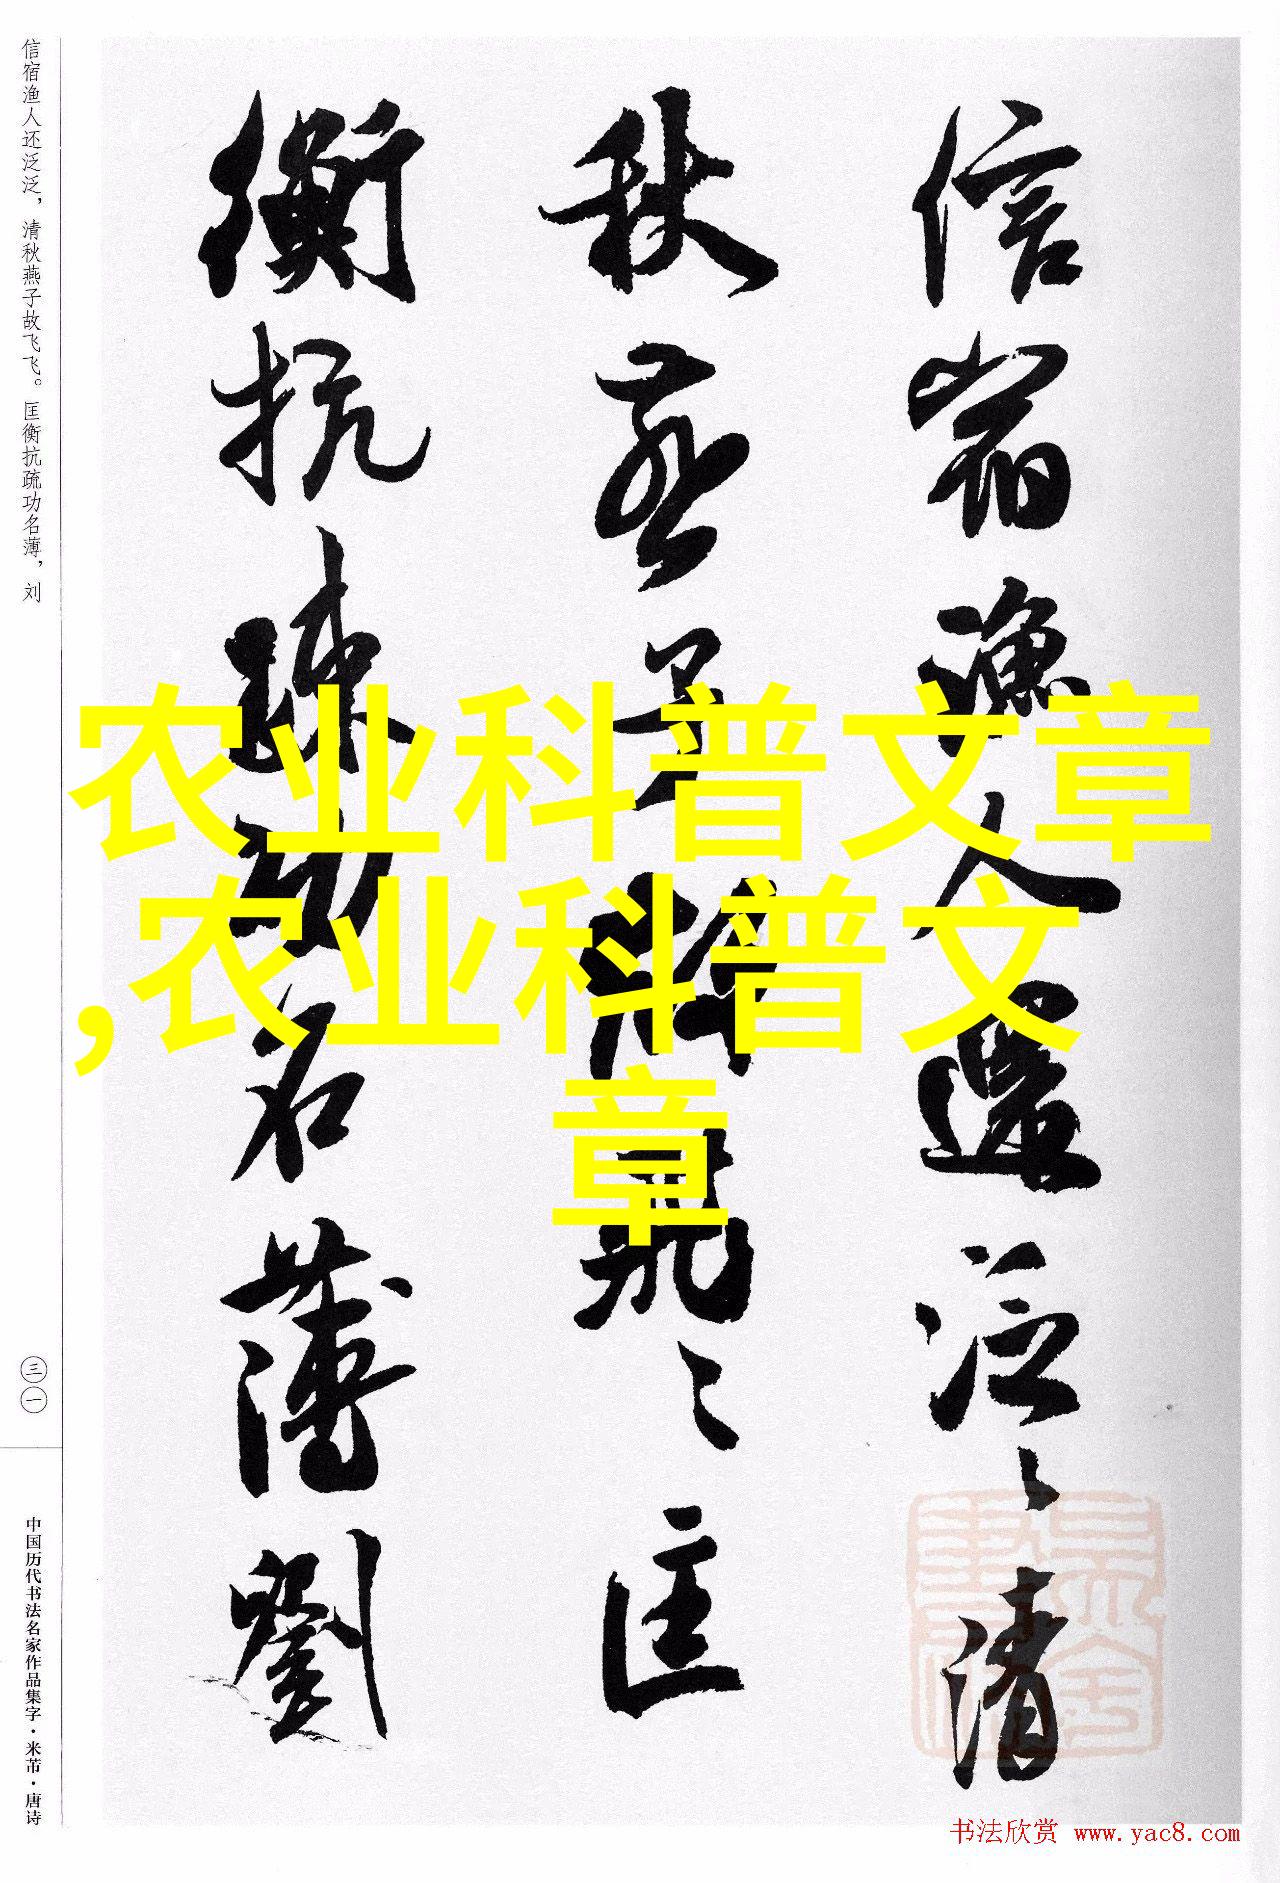 信宿渔人还泛泛，清秋燕子故飞飞。匡衡抗疏功名薄，刘
三一
中国历代书法名家作品集字·米芾·唐诗
信宿漁人還泛〻清
秋燕子故飛〻匡
衡抗疏功名薄劉
农业科普文章
,农业科普文
章
书法欣赏 www.yac8.com